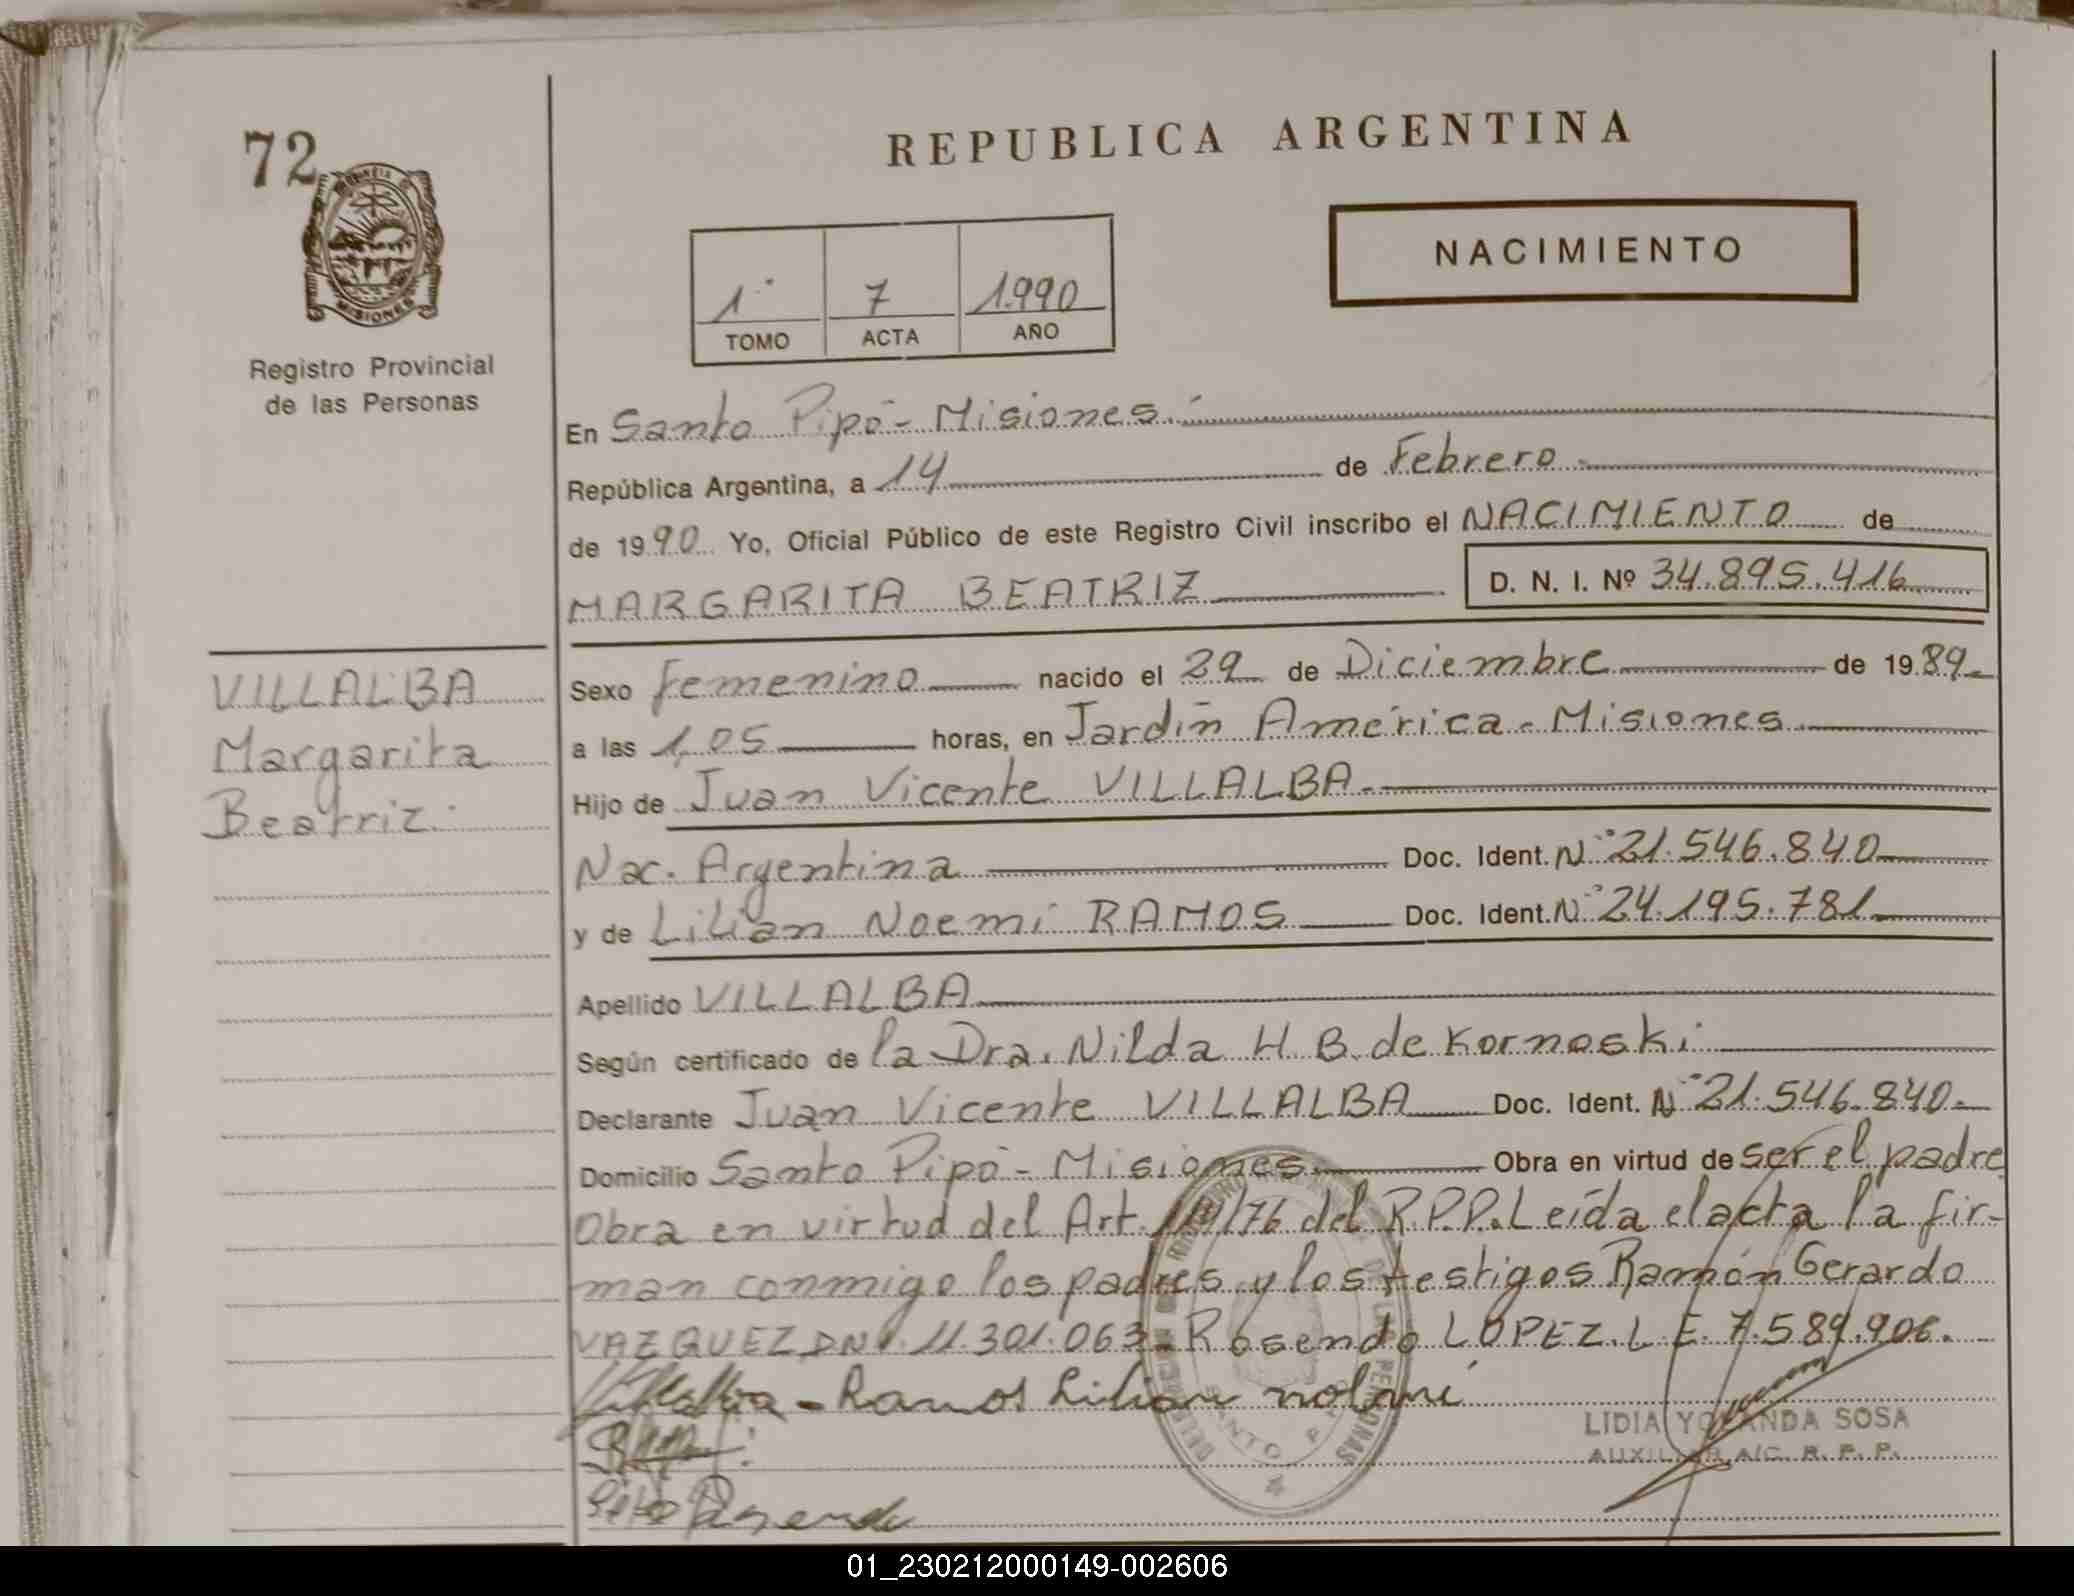 72
PROVINCIA DE
MISIONES
Registro Provincial
de las Personas
REPUBLICA ARGENTINA
NACIMIENTO
1° 7 1.990
TOMO ACTA AÑO
En Santo Pipó - Misiones.
República Argentina, a 14 de Febrero
de 1990 Yo, Oficial Público de este Registro Civil inscribo el NACIMIENTO de
MARGARITA BEATRIZ D. N. I. Nº 34.895.416
VILLALBA
Margarita
Beatriz.
Sexo femenino nacido el 29 de Diciembre de 1989
a las 1,05 horas, en Jardín América - Misiones
Hijo de Juan Vicente VILLALBA.
Nac. Argentina Doc. Ident. N° 21.546.840
y de Lilian Noemí RAMOS Doc. Ident. N° 24.195.781
Apellido VILLALBA
Según certificado de la Dra. Nilda H. B. de Kornoski
Declarante Juan Vicente VILLALBA Doc. Ident. N° 21.546.840.
Domicilio Santo Pipó - Misiones Obra en virtud de ser el padre
Obra en virtud del Art. /76 del R.P.P. Leída el acta la fir-
man conmigo los padres y los testigos Ramón Gerardo
VAZQUEZ DNI. 11.301.063 - Rosendo LOPEZ. L.E. 7.589.906.
Villalba - Ramos Lilian
LIDIA YOLANDA SOSA
AUXILIAR A/C. R. P. P.
01_230212000149-002606